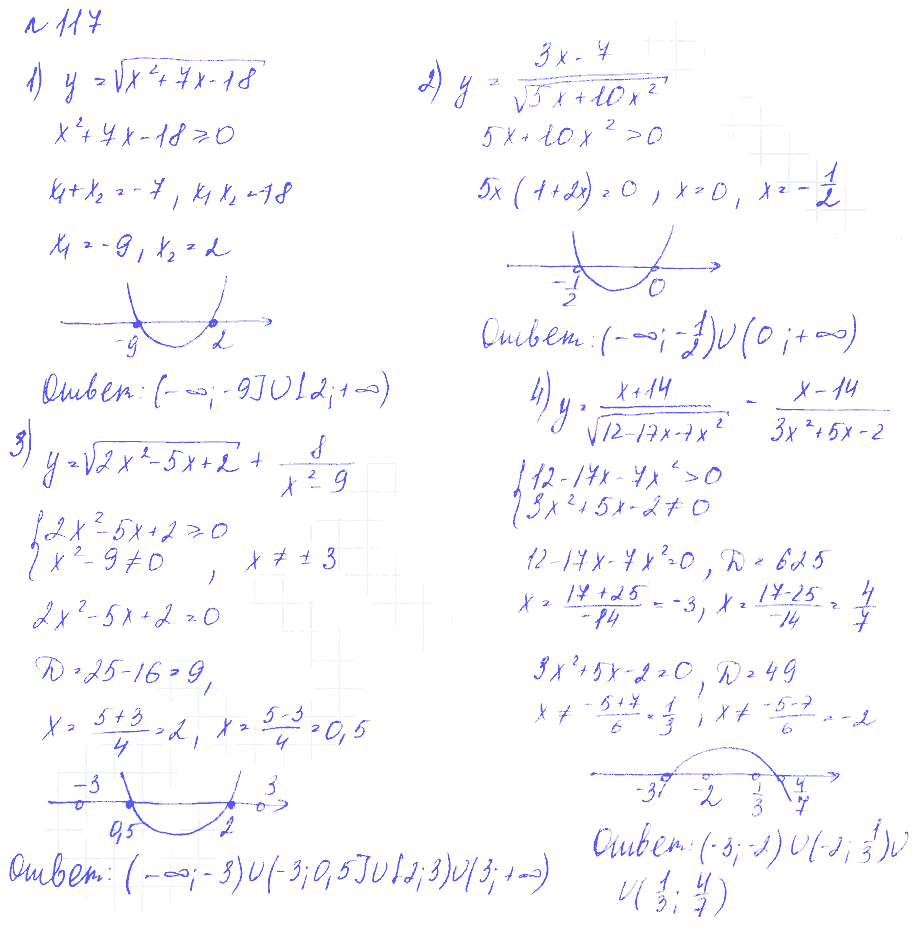 № 117
1) y = √(x² + 7x - 18)
x² + 7x - 18 ≥ 0
x₁ + x₂ = -7, x₁ x₂ = -18
x₁ = -9, x₂ = 2
-9 2
Ответ: (-∞; -9] ∪ [2; +∞)
2) y = (3x - 7)/√(5x + 10x²)
5x + 10x² > 0
5x(1 + 2x) = 0, x = 0, x = -1/2
-1/2 0
Ответ: (-∞; -1/2) ∪ (0; +∞)
3) y = √(2x² - 5x + 2) + 8/(x² - 9)
{ 2x² - 5x + 2 ≥ 0
{ x² - 9 ≠ 0, x ≠ ±3
2x² - 5x + 2 = 0
D = 25 - 16 = 9,
x = (5 + 3)/4 = 2, x = (5 - 3)/4 = 0,5
-3 0,5 2 3
Ответ: (-∞; -3) ∪ (-3; 0,5] ∪ [2; 3) ∪ (3; +∞)
4) y = (x + 14)/√(12 - 17x - 7x²) - (x - 14)/(3x² + 5x - 2)
{ 12 - 17x - 7x² > 0
{ 3x² + 5x - 2 ≠ 0
12 - 17x - 7x² = 0, D = 625
x = (17 + 25)/(-14) = -3, x = (17 - 25)/(-14) = 4/7
3x² + 5x - 2 = 0, D = 49
x ≠ (-5 + 7)/6 = 1/3, x ≠ (-5 - 7)/6 = -2
-3 -2 1/3 4/7
Ответ: (-3; -2) ∪ (-2; 1/3) ∪
∪ (1/3; 4/7)